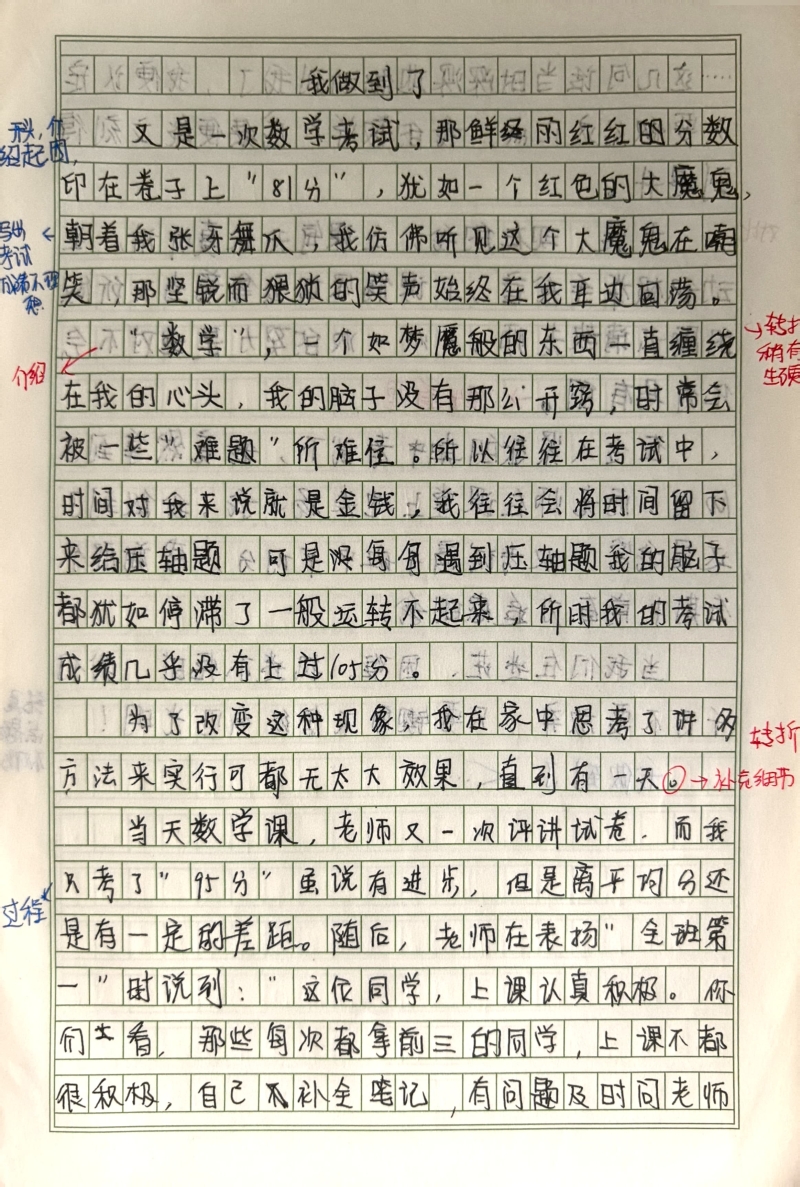 我做到了
开头,介
绍起因,
又是一次数学考试,那鲜经丽红红的分数
印在卷子上"81分",犹如一个红色的大魔鬼,
写出
考试
成绩不理
想.
朝着我张牙舞爪,我仿佛听见这个大魔鬼在嘲
笑,那坚锐而猥猥的笑声始终在我耳边回荡。
"数学",一个如梦魇般的东西一直缠绕
转折
稍有
生硬
介绍
在我的心头,我的脑子没有那公开窍,时常会
被一些"难题"所难住。所以往往在考试中,
时间对我来说就是金钱,我往往会将时间留下
来给压轴题,可是没每每遇到压轴题我的脑子
都犹如停滞了一般运转不起来,所时我的考试
成绩几乎没有上过105分。
为了改变这种现象,我在家中思考了许多
转折
方法来实行可都无太大效果,直到有一天。
补充细节
当天数学课,老师又一次评讲试卷.而我
过程
只考了"95分"虽说有进步,但是离平均分还
是有一定的差距。随后,老师在表扬"全班第
一"时说到:"这位同学,上课认真积极。你
们看,那些每次都拿前三的同学,上课不都
很积极,自己不补全笔记,有问题及时问老师